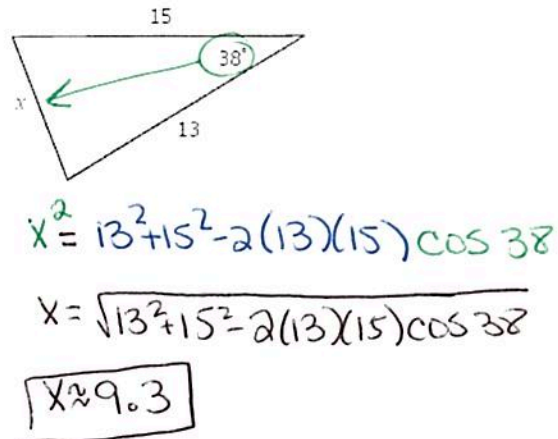 15
38°
x
13
x² = 13²+15²-2(13)(15) cos 38
x = √13²+15²-2(13)(15)cos 38
x≈9.3